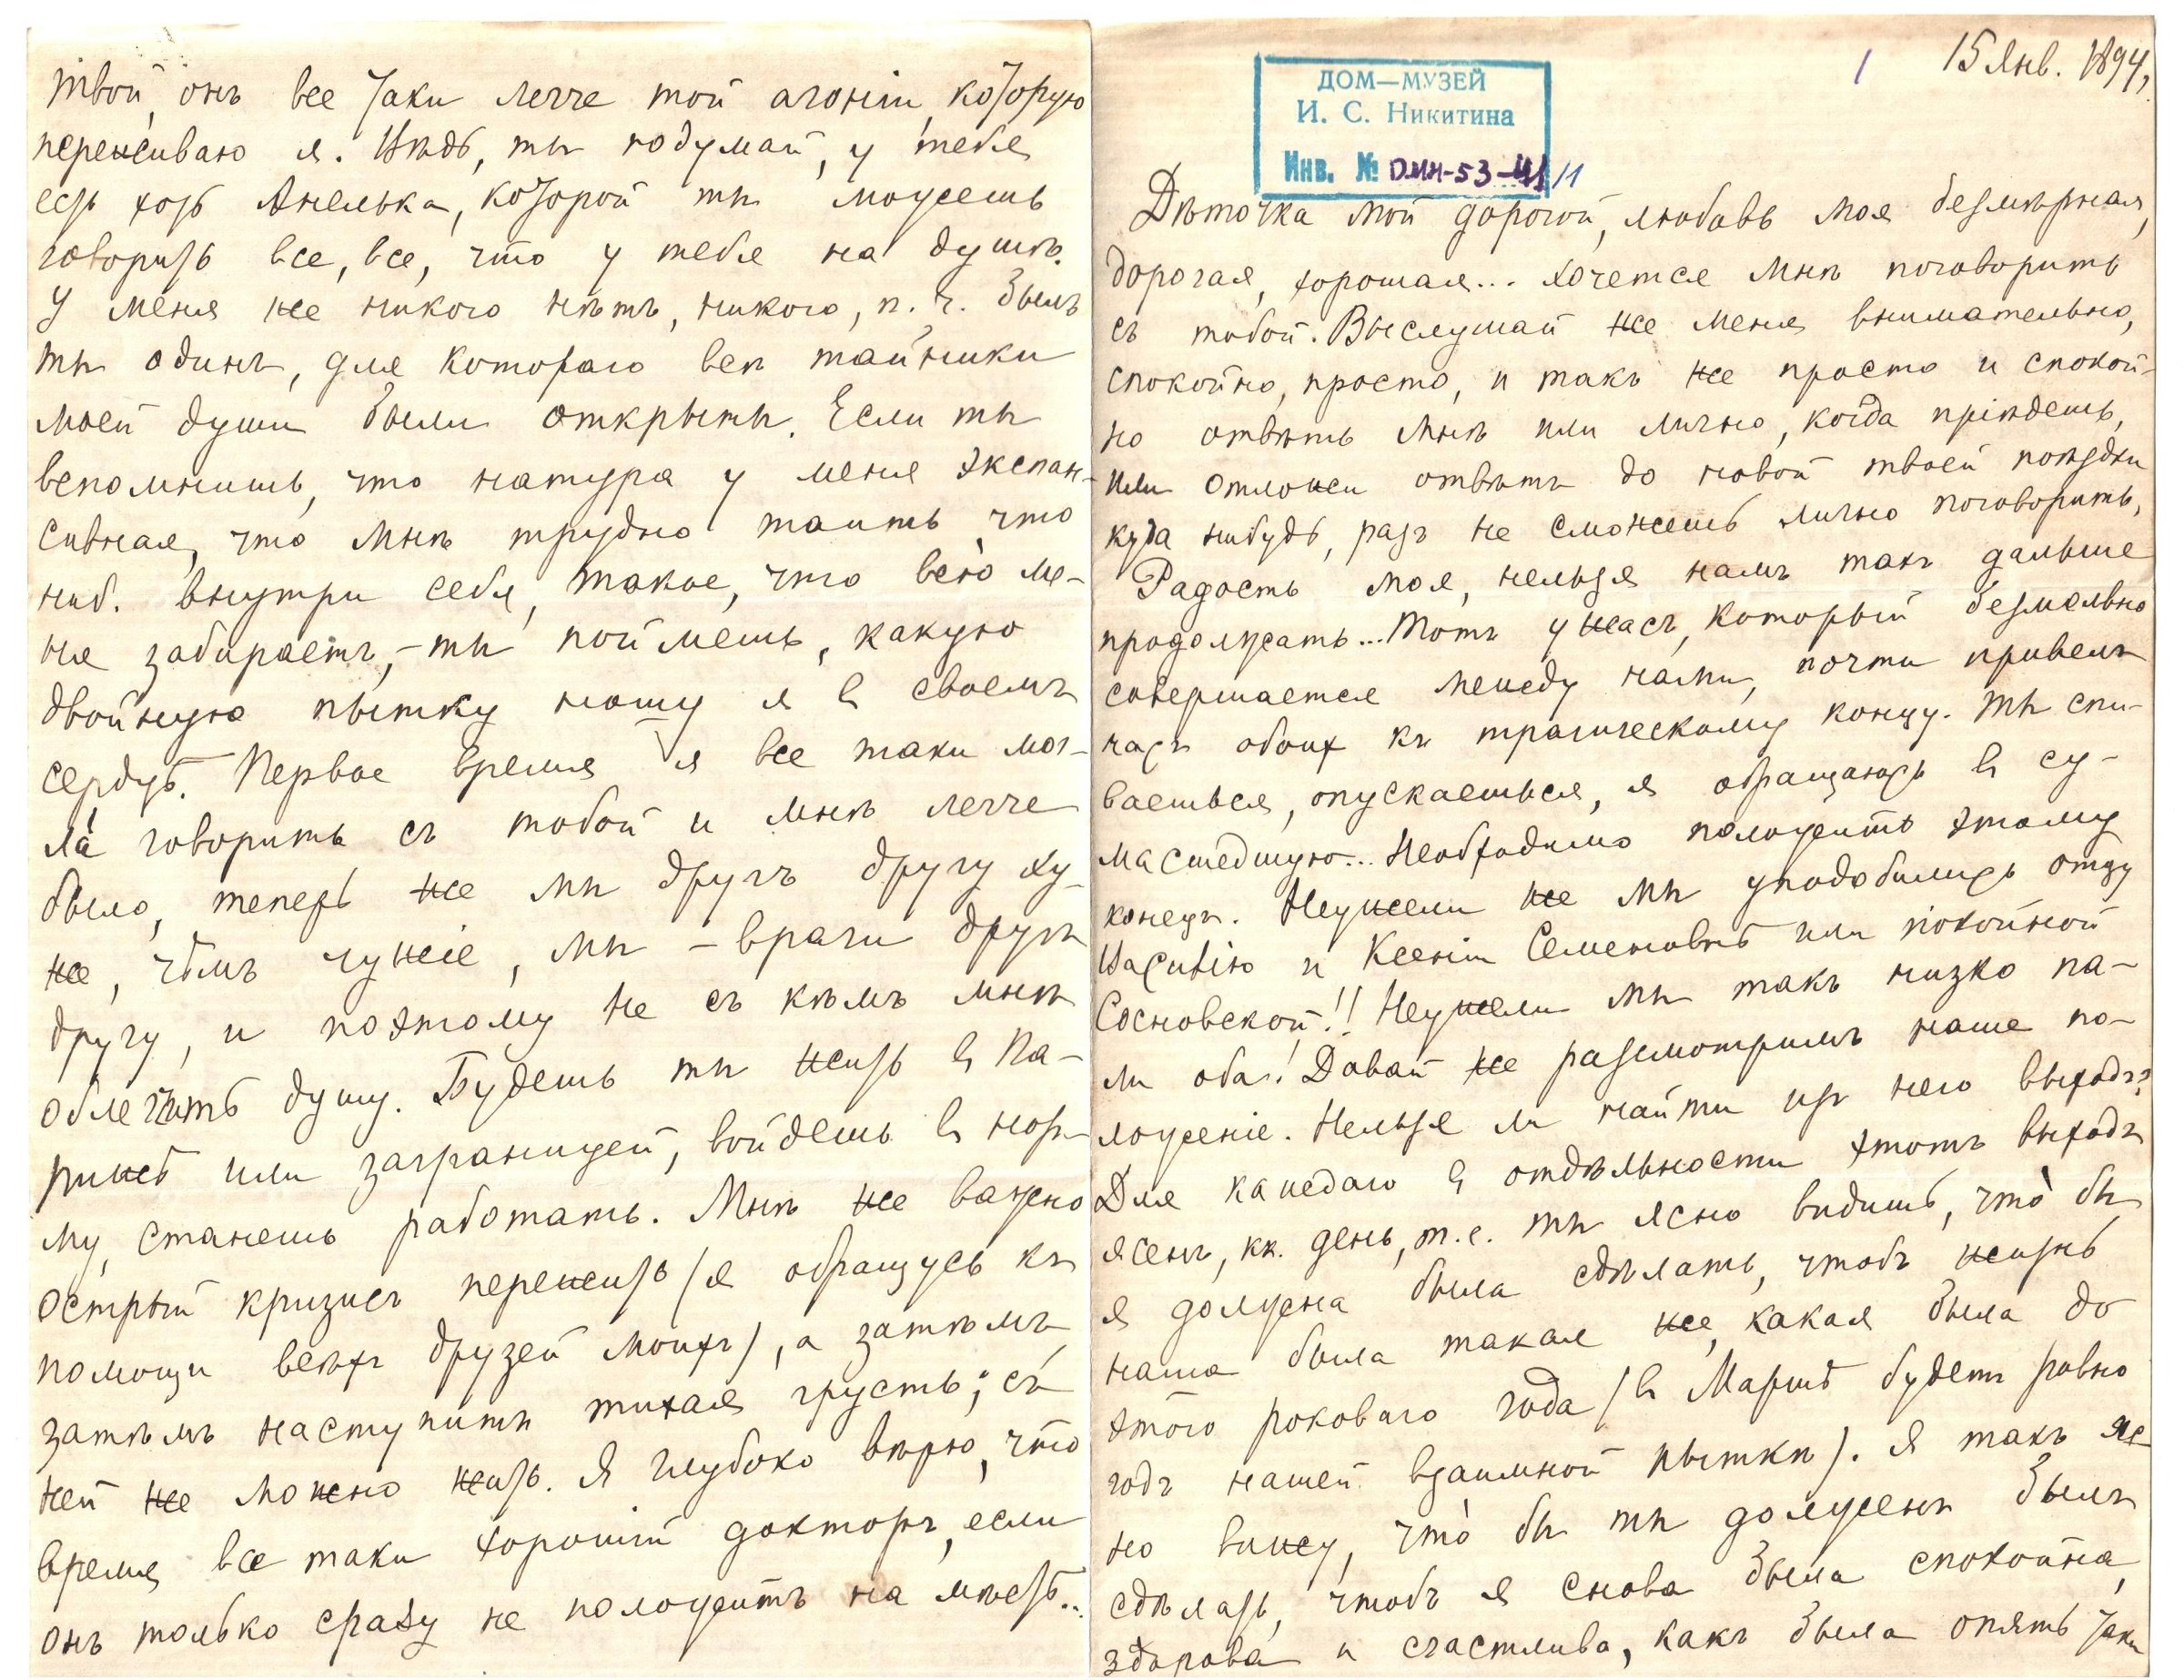 твой, онъ все таки легче той агоніи, которую
переживаю я. Вѣдь, ты подумай, у тебя
есть хоть Анелька, которой ты можешь
говорить все, все, что у тебя на душѣ.
У меня же никого нѣтъ, никого, п. ч. былъ
ты одинъ, для котораго всѣ тайники
моей души были открыты. Если ты
вспомнишь, что натура у меня экспан-
сивная, что мнѣ трудно таить что
ниб. внутри себя, такое, что всю ме-
ня забираетъ, – ты поймешь, какую
двойную пытку ношу я въ своемъ
сердцѣ. Первое время я все таки мог-
ла говорить съ тобой и мнѣ легче
было, теперь же мы другъ другу ху-
же, чѣмъ чужіе, мы – враги другъ
другу, и поэтому не съ кѣмъ мнѣ
облегчить душу. Будешь ты жить въ Па-
рижѣ или заграницей, войдешь въ нор-
му, станешь работать. Мнѣ же важно
острый кризисъ пережить (я обращусь къ
помощи всѣхъ друзей моихъ), а затѣмъ,
затѣмъ наступитъ тихая грусть; съ
ней же можно жить. Я глубоко вѣрю, что
время все таки хорошій докторъ, если
онъ только сразу не положитъ на мѣстѣ..
1 15 Янв. 1894,
ДОМ—МУЗЕЙ
И. С. Никитина
Инв. № ДМН-53-41/1
Дѣточка мой дорогой, любовь моя безмѣрная,
дорогая, хорошая... Хочется мнѣ поговорить
съ тобой. Выслушай же меня внимательно,
спокойно, просто, и такъ же просто и спокой-
но отвѣть мнѣ или лично, когда пріѣдешь,
или отложи отвѣтъ до новой твоей поѣздки
куда нибудь, разъ не сможешь лично поговорить.
Радость моя, нельзя намъ такъ дальше
продолжать... Тотъ ужасъ, который безмолвно
совершается между нами, почти привелъ
насъ обоих къ трагическому концу. Ты спи-
ваешься, опускаешься, я обращаюсь въ су-
масшедшую... Необходимо положить этому
конецъ. Неужели же мы уподобились отцу
Василію и Ксеніи Семеновнѣ или покойной
Сосновской!! Неужели мы такъ низко па-
ли оба! Давай же разсмотримъ наше по-
ложеніе. Нельзя ли найти изъ него выходъ?
Для каждаго въ отдѣльности этотъ выходъ
ясенъ, кк. день, т. е. ты ясно видишь, что бы
я должна была сдѣлать, чтобъ жизнь
наша была такая же, какая была до
этого рокового года (въ Мартѣ будетъ ровно
годъ нашей взаимной пытки). Я такъ яс-
но вижу, что бы ты долженъ былъ
сдѣлать, чтобъ я снова была спокойна,
здорова и счастлива, какъ была опять таки